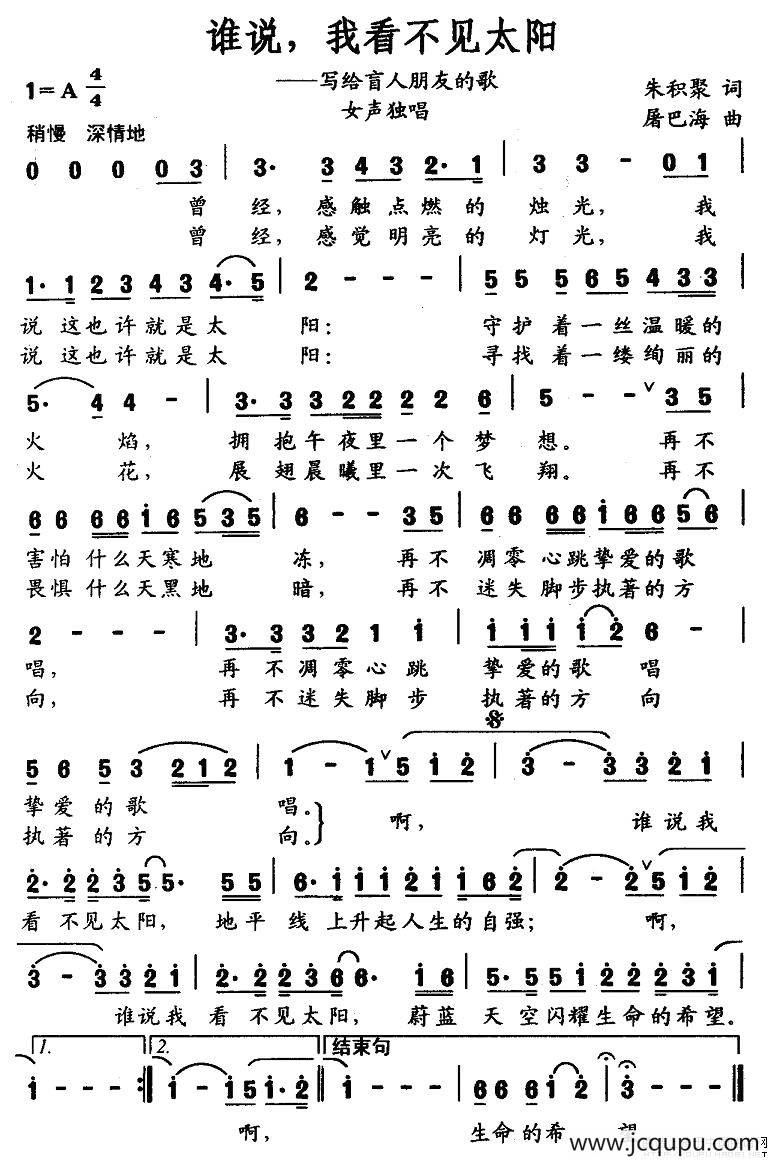 谁说，我看不见太阳
1=A 4/4
——写给盲人朋友的歌
女声独唱
朱积聚 词
屠巴海 曲
稍慢 深情地
0 0 0 0 3 | 3· 3 4 3 2· 1 | 3 3 - 0 1 |
曾 经， 感 触 点 燃 的 烛 光， 我
曾 经， 感 觉 明 亮 的 灯 光， 我
1· 1 2 3 4 3 4· 5 | 2 - - - | 5 5 5 6 5 4 3 3 |
说 这也许就是太 阳： 守护着一丝温暖的
说 这也许就是太 阳： 寻找着一缕绚丽的
5· 4 4 - | 3· 3 3 2 2 2 2 6 | 5 - - 3 5 |
火 焰， 拥 抱午夜里一个梦 想。 再不
火 花， 展 翅晨曦里一次飞 翔。 再不
6 6 6 6 i 6 5 3 5 | 6 - - 3 5 | 6 6 6 6 i 6 6 5 6 |
害怕 什么天寒地 冻， 再不 凋零 心跳挚爱的歌
畏惧 什么天黑地 暗， 再不 迷失 脚步执著的方
2 - - - | 3· 3 3 2 1 i | i i i i 2 6 - |
唱， 再 不凋零心跳 挚爱的歌 唱
向， 再 不迷失脚步 执著的方 向
5 6 5 3 2 1 2 | 1 - 1 5 i 2 | 3 - 3 3 2 i |
挚爱 的 歌 唱。 啊， 谁 说 我
执著 的 方 向。
2· 2 2 3 5 5· 5 5 | 6· i i i 2 i i 6 2 | 2 - 2 5 i 2 |
看 不见太阳， 地平 线 上升起人生的自强； 啊，
3 - 3 3 2 i | 2· 2 2 3 6 6· i 6 | 5· 5 5 i 2 2 2 3 i |
谁说我 看 不见太阳， 蔚蓝 天 空闪耀生命的希望。
1. 2. 结束句
i - - - :| i - i 5 i· 2 :| i - - - | 6 6 6 i i 2 | 3 - - - |
啊， 生命的希 望
www.jcqupu.com